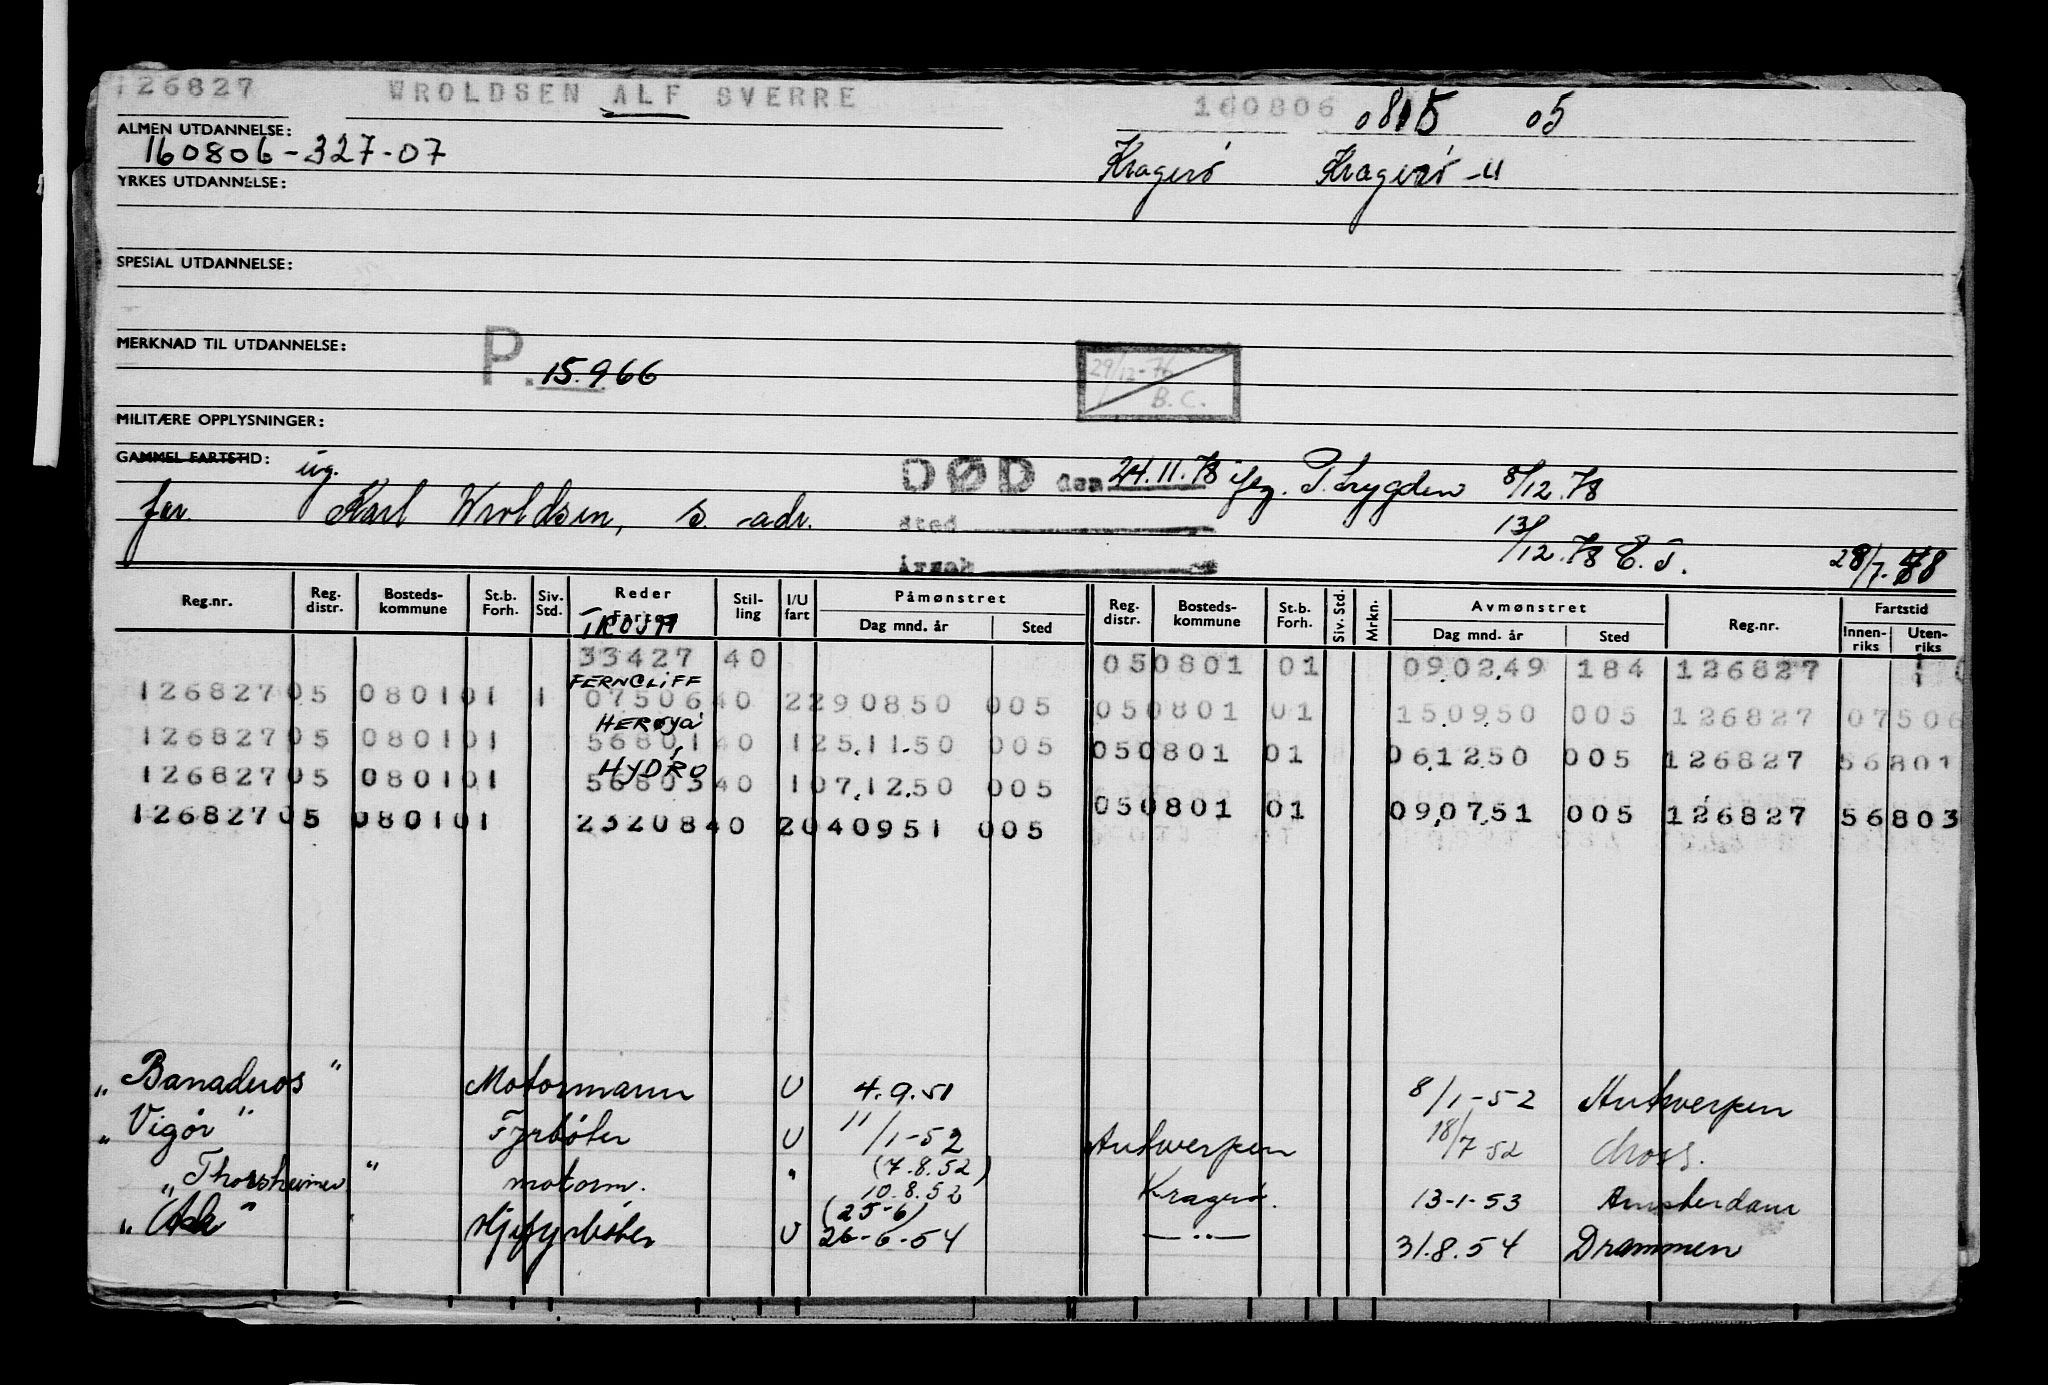 126827 WROLDSEN ALF SVERRE 160806 0815 05
ALMEN UTDANNELSE:
160806-327-07 Kragerö Kragerö
YRKES UTDANNELSE:
SPESIAL UTDANNELSE:
MERKNAD TIL UTDANNELSE:
P. 15.966
29/12-76
B.C.
MILITÆRE OPPLYSNINGER:
GAMMEL FARTSTID:
ug. DØD den 24.11.78 P.trygden 8/12.78
far. Karl Wroldsen, s. adr. sted 13/12.78 E.T.
årsak 28/7.48
Reg.nr. Reg. distr. Bosteds-kommune St.b. Forh. Siv. Std. Reder Stil-ling I/U fart Påmønstret Reg. distr. Bosteds-kommune St.b. Forh. Siv. Std. Mrkn. Avmønstret Reg.nr. Fartstid
Dag mnd. år Sted Dag mnd. år Sted Innen-riks Uten-riks
33427 40 050801 01 09.02.49 184 126827
FERNCLIFF
126827 05 0801 01 1 07506 40 2 290850 005 050801 01 150950 005 126827 07506
HERØYA
126827 05 0801 01 56801 40 1 25.11.50 005 050801 01 061250 005 126827 56801
HYDRO
126827 05 0801 01 56803 40 1 07.12.50 005 050801 01 090751 005 126827 56803
126827 05 0801 01 23208 40 2 040951 005
"Banaderos" Motormann U 4.9.51 8/1-52 Antwerpen
"Vigør" Fyrböter U 11/1-52 Antwerpen 18/7 52 Moss.
"Thorsheimer" motorm. " (7.8.52) 10.8.52 Kragerö. 13-1-53 Amsterdam
"Ask" Hjefyrböter U (25-6) 26-6-54 —"— 31.8.54 Drammen